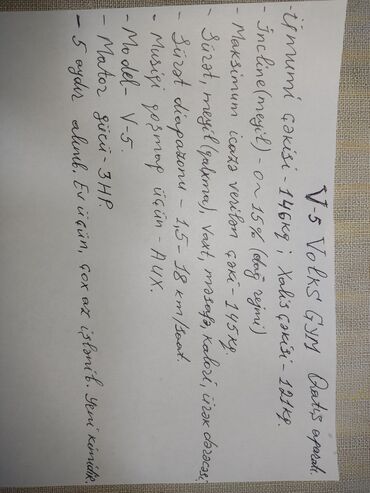 V.5 Volks GYM Qaçış aparatı.
- Ümumi çəkisi - 146 kg; Xalis çəkisi - 121 kg.
- İncline (meyil) - 0 ~ 15% (dağ rejmi)
- Maksimum icazə verilən çəki - 145 kg.
- Sürət, meyil (qalxma), vaxt, məsafə, kalori, ürək dərəcəsi,
- Sürət diapazonu - 1,5 - 18 km/saat.
- Musiqi qoşmaq üçün - AUX.
- Model - V-5.
- Mator gücü - 3HP.
- 5 aydır alınıb. Ev üçün, çox az işlənib. Yeni kimidir.